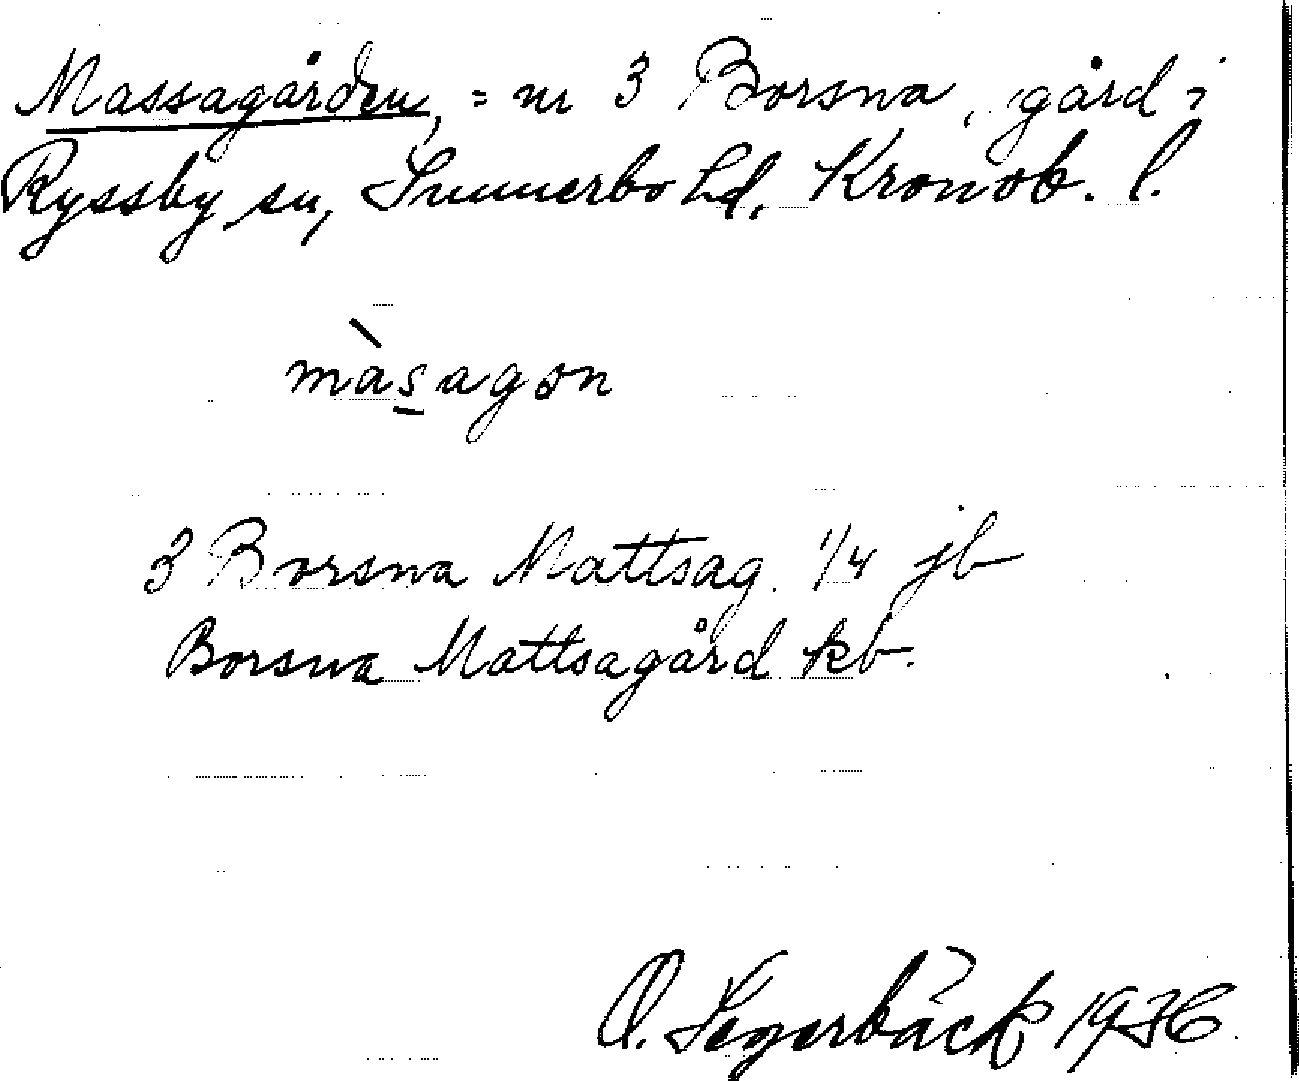 Massagården, = nr 3 Borsna, gård i
Ryssby sn, Sunnerbo hd, Kronob. l.
màs̲agon
3 Borsna Mattsag. 1/4 jb
Borsna Mattsagård kb.
O. Segerbäck 1936